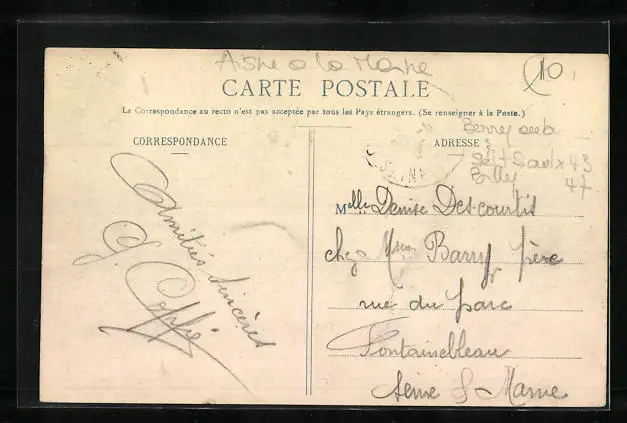 Aisne à la Marne
10
CARTE POSTALE
La Correspondance au recto n'est pas acceptée par tous les Pays étrangers. (Se renseigner à la Poste.)
CORRESPONDANCE
ADRESSE
Sept Saulx 43
Billy 47
Amitiés sincères
G. Coppé
Melle Denise Descourtis
chez Mr Barry père
rue du parc
Fontainebleau
Seine & Marne